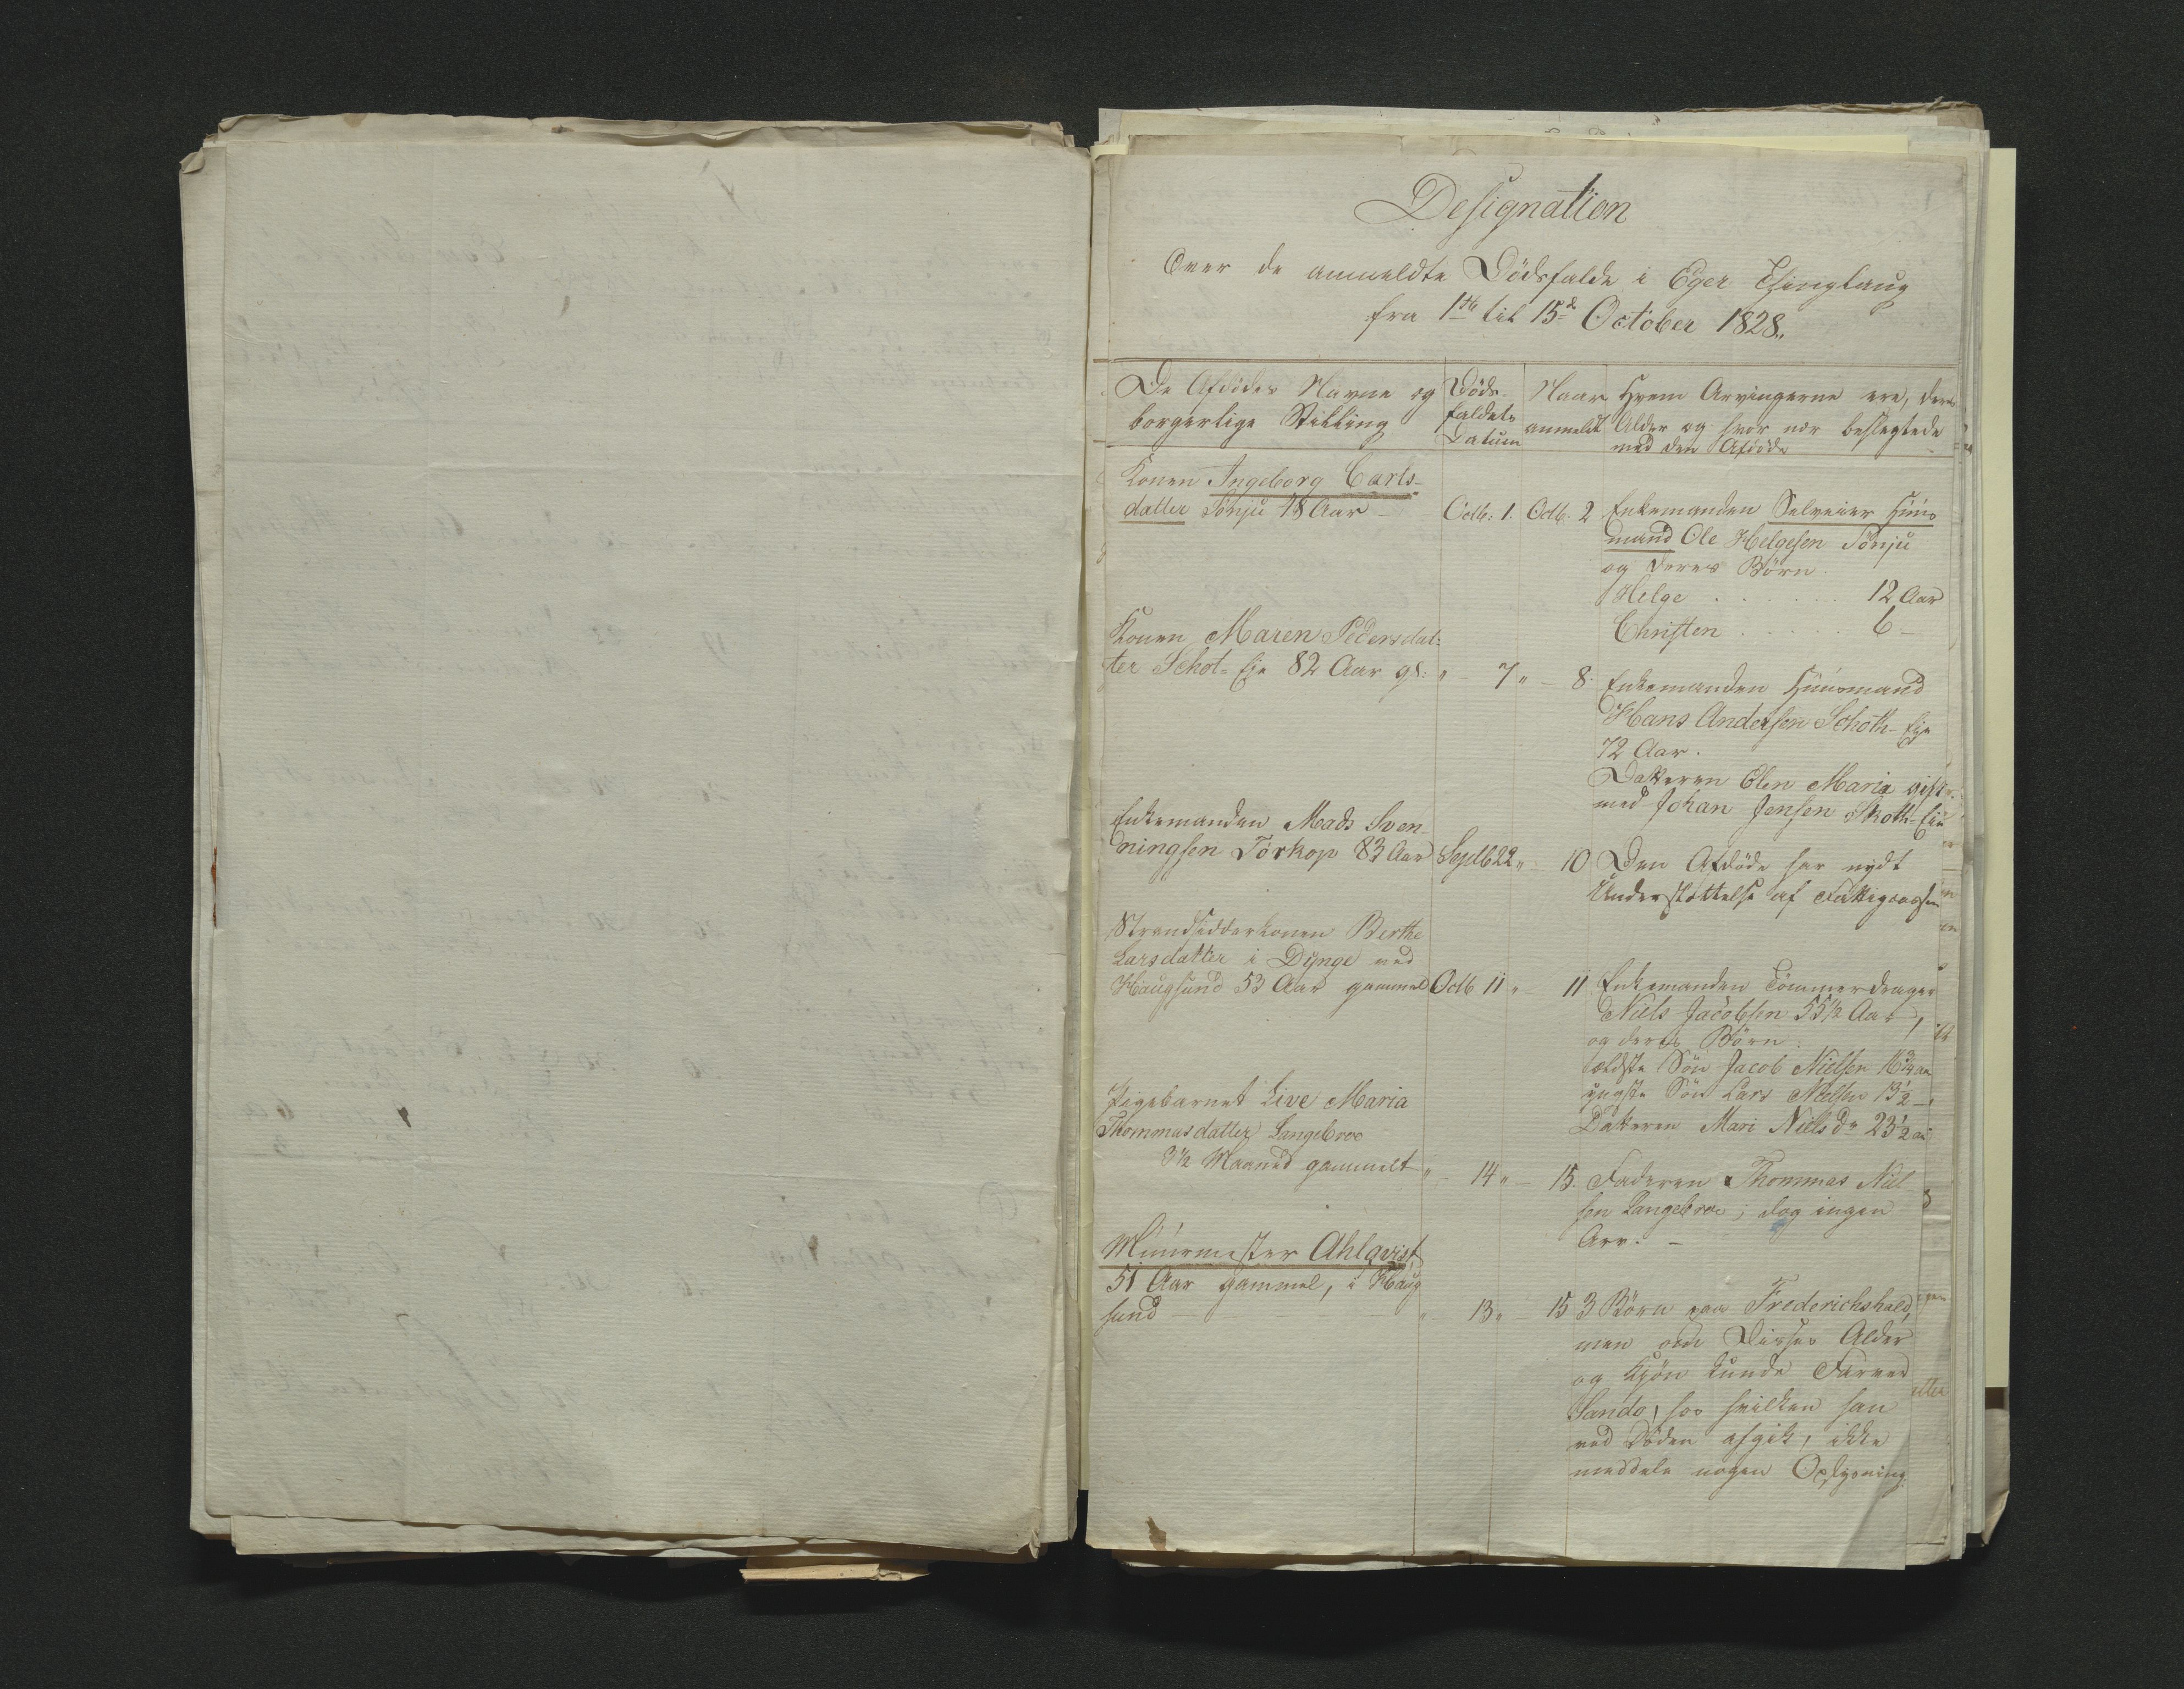 Designation
Over de anmeldte Dödsfalde i Eger Thinglaug
fra 1ste til 15de October 1828.
De Afdödes Navne og
borgerlige Stilling
Döds-
faldets
Datum
Naar
anmeldt
Hvem Arvingerne ere, deres
Alder og hvor nær beslegtede
med den Afdöde
Konen Ingeborg Carls-
datter Sönju 48 Aar - Octb: 1. Octb. 2
Enkemanden Selveier Huus
mand Ole Helgesen Sönju
og deres Börn.
Helge . . . . . . 12 Aar
Christen . . . . . 6 -
Konen Maren Pedersdat-
ter Schot-Eje 82 Aar gl: " - 7 " - 8.
Enkemanden Huusmand
Hans Andersen Schoth-Eje
72 Aar.
Datteren Olen Maria gift
med Johan Jensen Skoth-Eie
Enkemanden Mads Sven-
ningsen Torkop 83 Aar Septb 22 " 10
Den Afdöde har nydt
Understöttelse af Fattigcassen
Strandsidderkonen Berthe
Larsdatter i Dynge ved
Haugsund 53 Aar gammel Octb 11 " - 11.
Enkemanden Tömmerdrager
Niels Jacobsen 55 1/2 Aar,
og deres Börn:
ældste Sön Jacob Nielsen 16 3/4 aar
yngste Sön Lars Nielsen 13 1/2 -
Datteren Mari Nielsdr 23 1/2 aar
Pigebarnet Live Maria
Thommasdatter Langebroe
3 1/2 Maaned gammelt " - 14 " - 15.
Faderen Thommas Niel
sen Langebroe, dog ingen
Arv. -
Muurmester Ahlqvist,
51 Aar gammel, i Haug
sund - " 13 " - 15
3 Börn paa Frederichshald,
men om Disses Alder
og Kjön kunde Farver
Sando, hos hvilken han
ved Döden afgik, ikke
meddele nogen Oplysning.